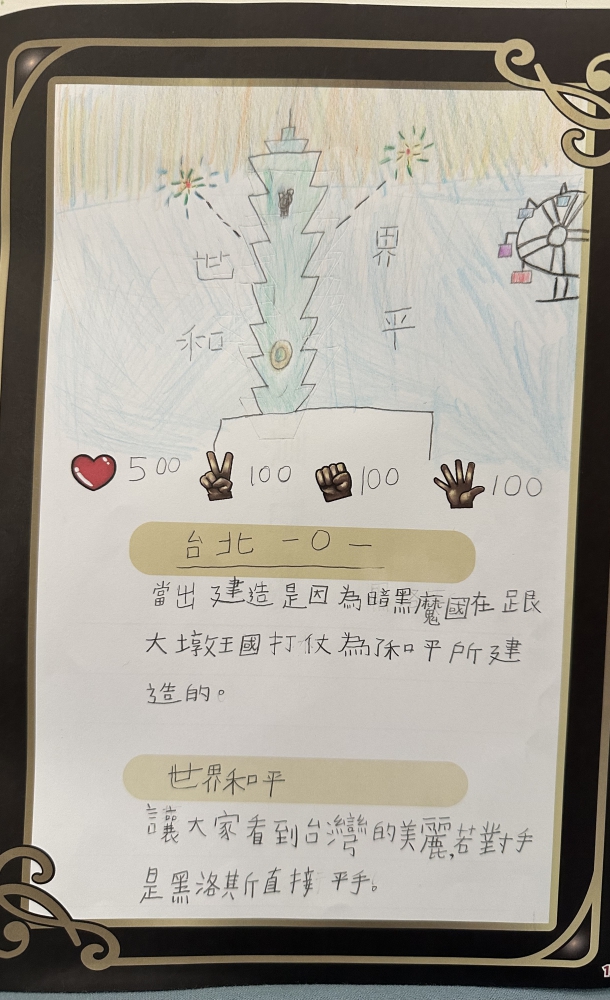 世界
和平
500 100 100 100
台北一0一
當出建造是因為暗黑魔國在跟
大墩王國打仗為了和平所建
造的。
世界和平
讓大家看到台灣的美麗,若對手
是黑洛斯直接平手。
1